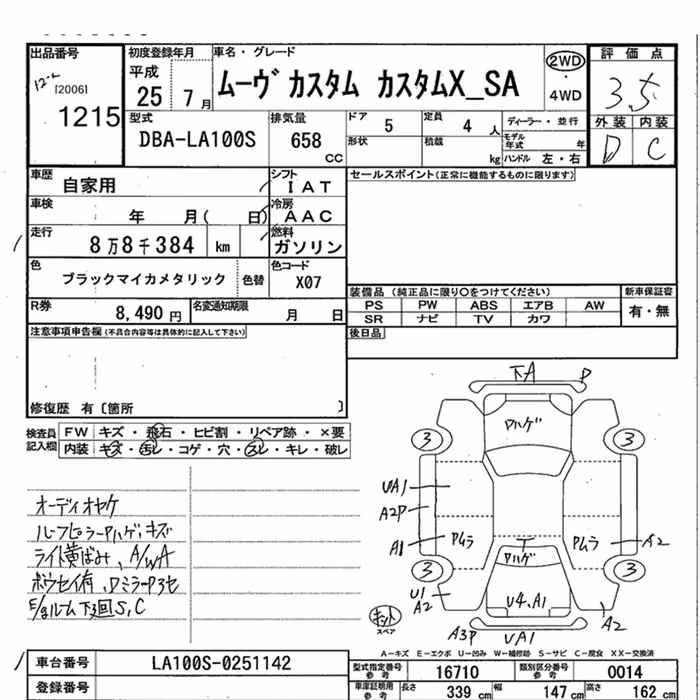 出品番号
12-2
[2006]
1215
初度登録年月
平成
25 7月
車名・グレード
ムーヴ カスタム カスタムX_SA
2WD
・
4WD
評価点
3.5
外装 内装
D C
型式
DBA-LA100S
排気量
658
CC
ドア 5
定員 4 人
形状
積載 kg
ディーラー・並行
モデル年式 年
ハンドル 左・右
車歴
自家用
シフト
IAT
車検
年 月( 日)
冷房
AAC
走行
8万8千384 km
燃料
ガソリン
色
ブラックマイカメタリック
色替
色コード
X07
R券
8,490 円
名変通知期限
月 日
セールスポイント(正常に機能するものに限ります)
装備品(純正品に限り○をつけてください)
PS PW ABS エアB AW
SR ナビ TV カワ
新車保証書
有・無
後日品
注意事項申告欄(不具合内容等は具体的に記入して下さい)
修復歴 有〔箇所 〕
検査員
記入欄
FW キズ・飛石・ヒビ割・リペア跡・×要
内装 キズ・汚レ・コゲ・穴・スレ・キレ・破レ
オーディオヤケ
ルーフピラーPハゲ・キズ
ライト黄ばみ、A/WA
ボウセイ有、DミラーP3セ
E/ヨルーム下回S,C
下A
P
Pハゲ
3
3
UA1
A2P
A1
Pムラ
Pムラ
A2
Pハゲ
3
3
U1
A2
U4、A1
A2
キット
スペア
A3P
UA1
A-キズ E-エクボ U-凹み W-補修跡 S-サビ C-腐食 XX-交換済
車台番号
LA100S-0251142
登録番号
型式指定番号
参考
16710
類別区分番号
参考
0014
車庫証明用
参考
長さ 339 cm
幅 147 cm
高さ 162 cm